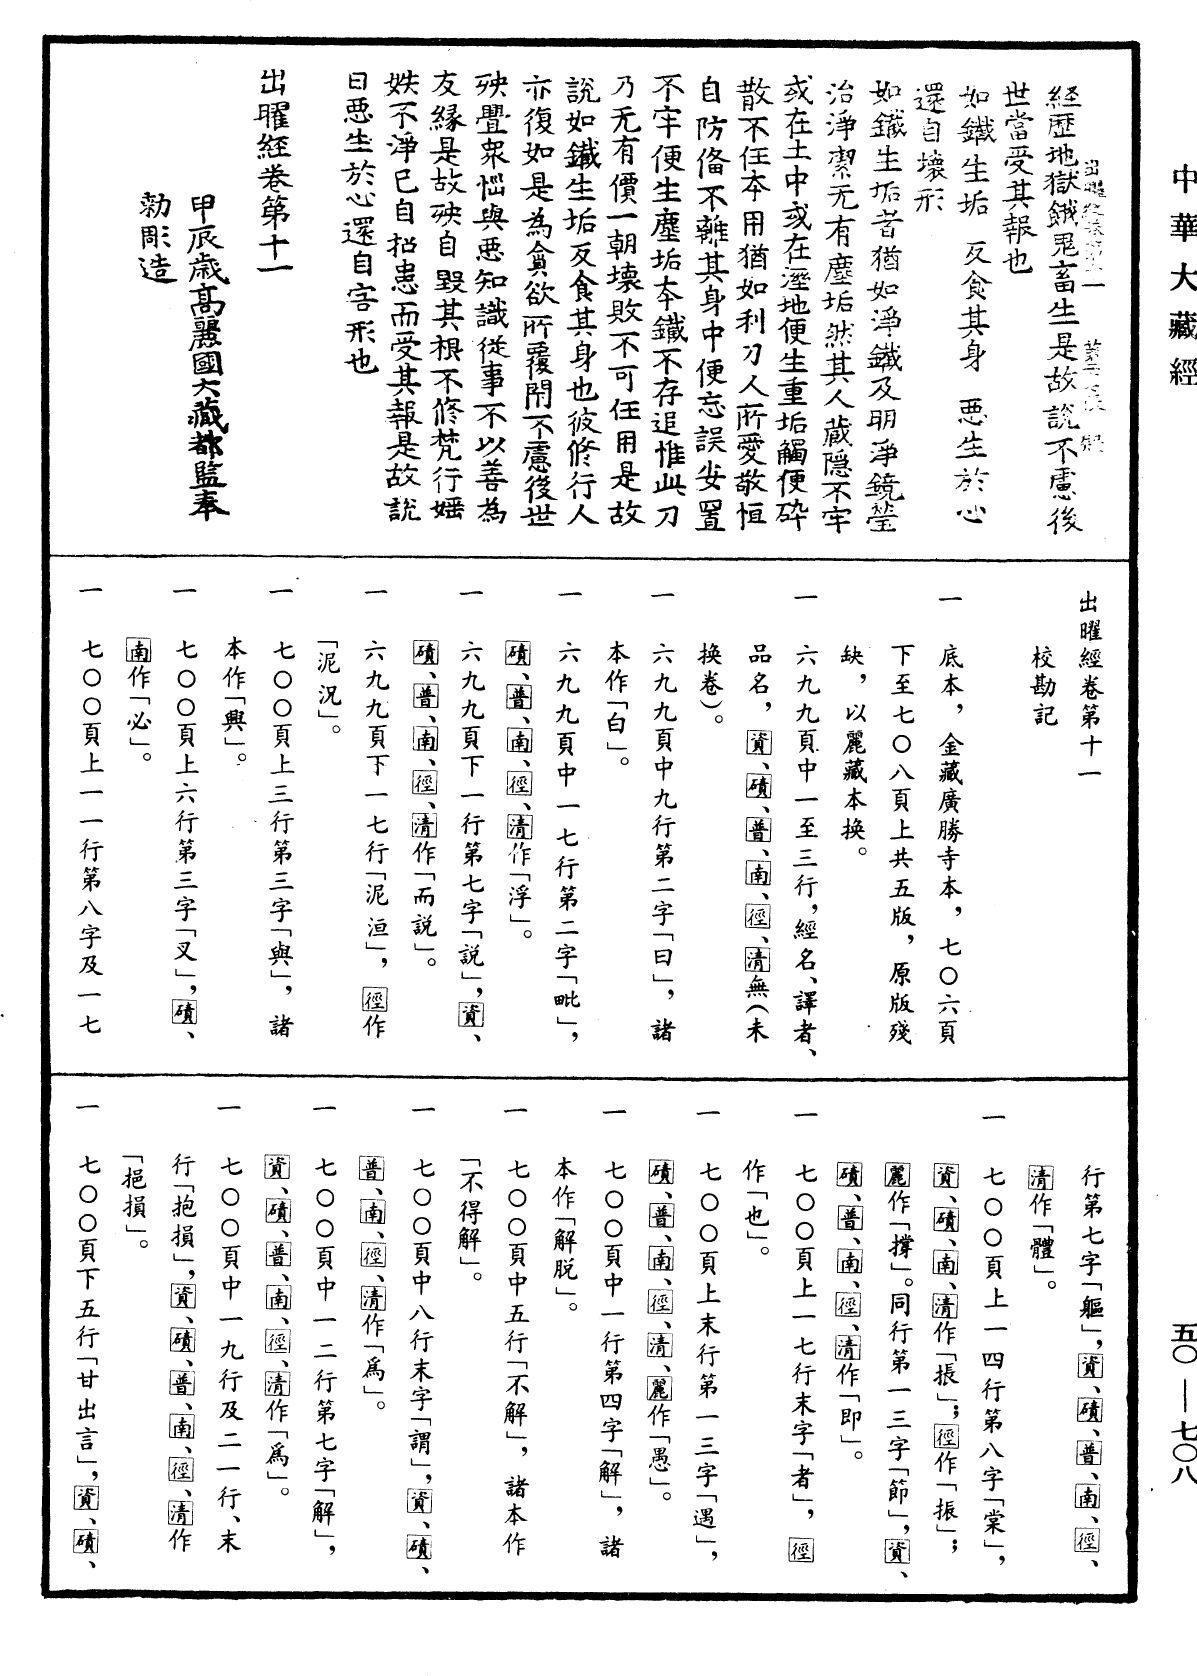 中華大藏經
經歷地獄餓鬼畜生是故說不慮後
世當受其報也
如鐵生垢　反食其身　惡生於心
還自壞形
如鐵生垢者猶如淨鐵及明淨鏡瑩
治淨潔无有塵垢然其人藏隱不牢
或在土中或在溼地便生重垢觸便碎
散不任本用猶如利刀人所愛敬恒
自防俻不離其身中便忘誤安置
不牢便生塵垢夲鐵不存追惟此刀
乃无有價一朝壞敗不可任用是故
說如鐵生垢反食其身也彼修行人
亦復如是為貪欲所覆閇不慮後世
殃舋衆惱與惡知識從事不以善為
友緣是故殃自毀其根不修梵行婬
妷不淨已自招患而受其報是故說
曰惡生於心還自害形也
出曜經卷第十一
甲辰歲高麗國大藏都監奉
勅彫造
出曜經卷第十一
校勘記
一　底本，金藏廣勝寺本，七〇六頁
下至七〇八頁上共五版，原版殘
缺，以麗藏本換。
一　六九九頁中一至三行，經名、譯者、
品名，資、磧、普、南、徑、清無（未
換卷）。
一　六九九頁中九行第二字「曰」，諸
本作「白」。
一　六九九頁中一七行第二字「毗」，
磧、普、南、徑、清作「浮」。
一　六九九頁下一行第七字「說」，資、
磧、普、南、徑、清作「而說」。
一　六九九頁下一七行「泥洹」，徑作
「泥況」。
一　七〇〇頁上三行第三字「與」，諸
本作「興」。
一　七〇〇頁上六行第三字「叉」，磧、
南作「必」。
一　七〇〇頁上一一行第八字及一七
行第七字「軀」，資、磧、普、南、徑、
清作「體」。
一　七〇〇頁上一四行第八字「棠」，
資、磧、南、清作「振」；徑作「振」；
麗作「撐」。同行第一三字「節」，資、
磧、普、南、徑、清作「即」。
一　七〇〇頁上一七行末字「者」，徑
作「也」。
一　七〇〇頁上末行第一三字「遇」，
磧、普、南、徑、清、麗作「愚」。
一　七〇〇頁中一行第四字「解」，諸
本作「解脱」。
一　七〇〇頁中五行「不解」，諸本作
「不得解」。
一　七〇〇頁中八行末字「謂」，資、磧、
普、南、徑、清作「爲」。
一　七〇〇頁中一二行第七字「解」，
資、磧、普、南、徑、清作「爲」。
一　七〇〇頁中一九行及二一行、末
行「抱損」，資、磧、普、南、徑、清作
「挹損」。
一　七〇〇頁下五行「甘出言」，資、磧、
五〇—七〇八